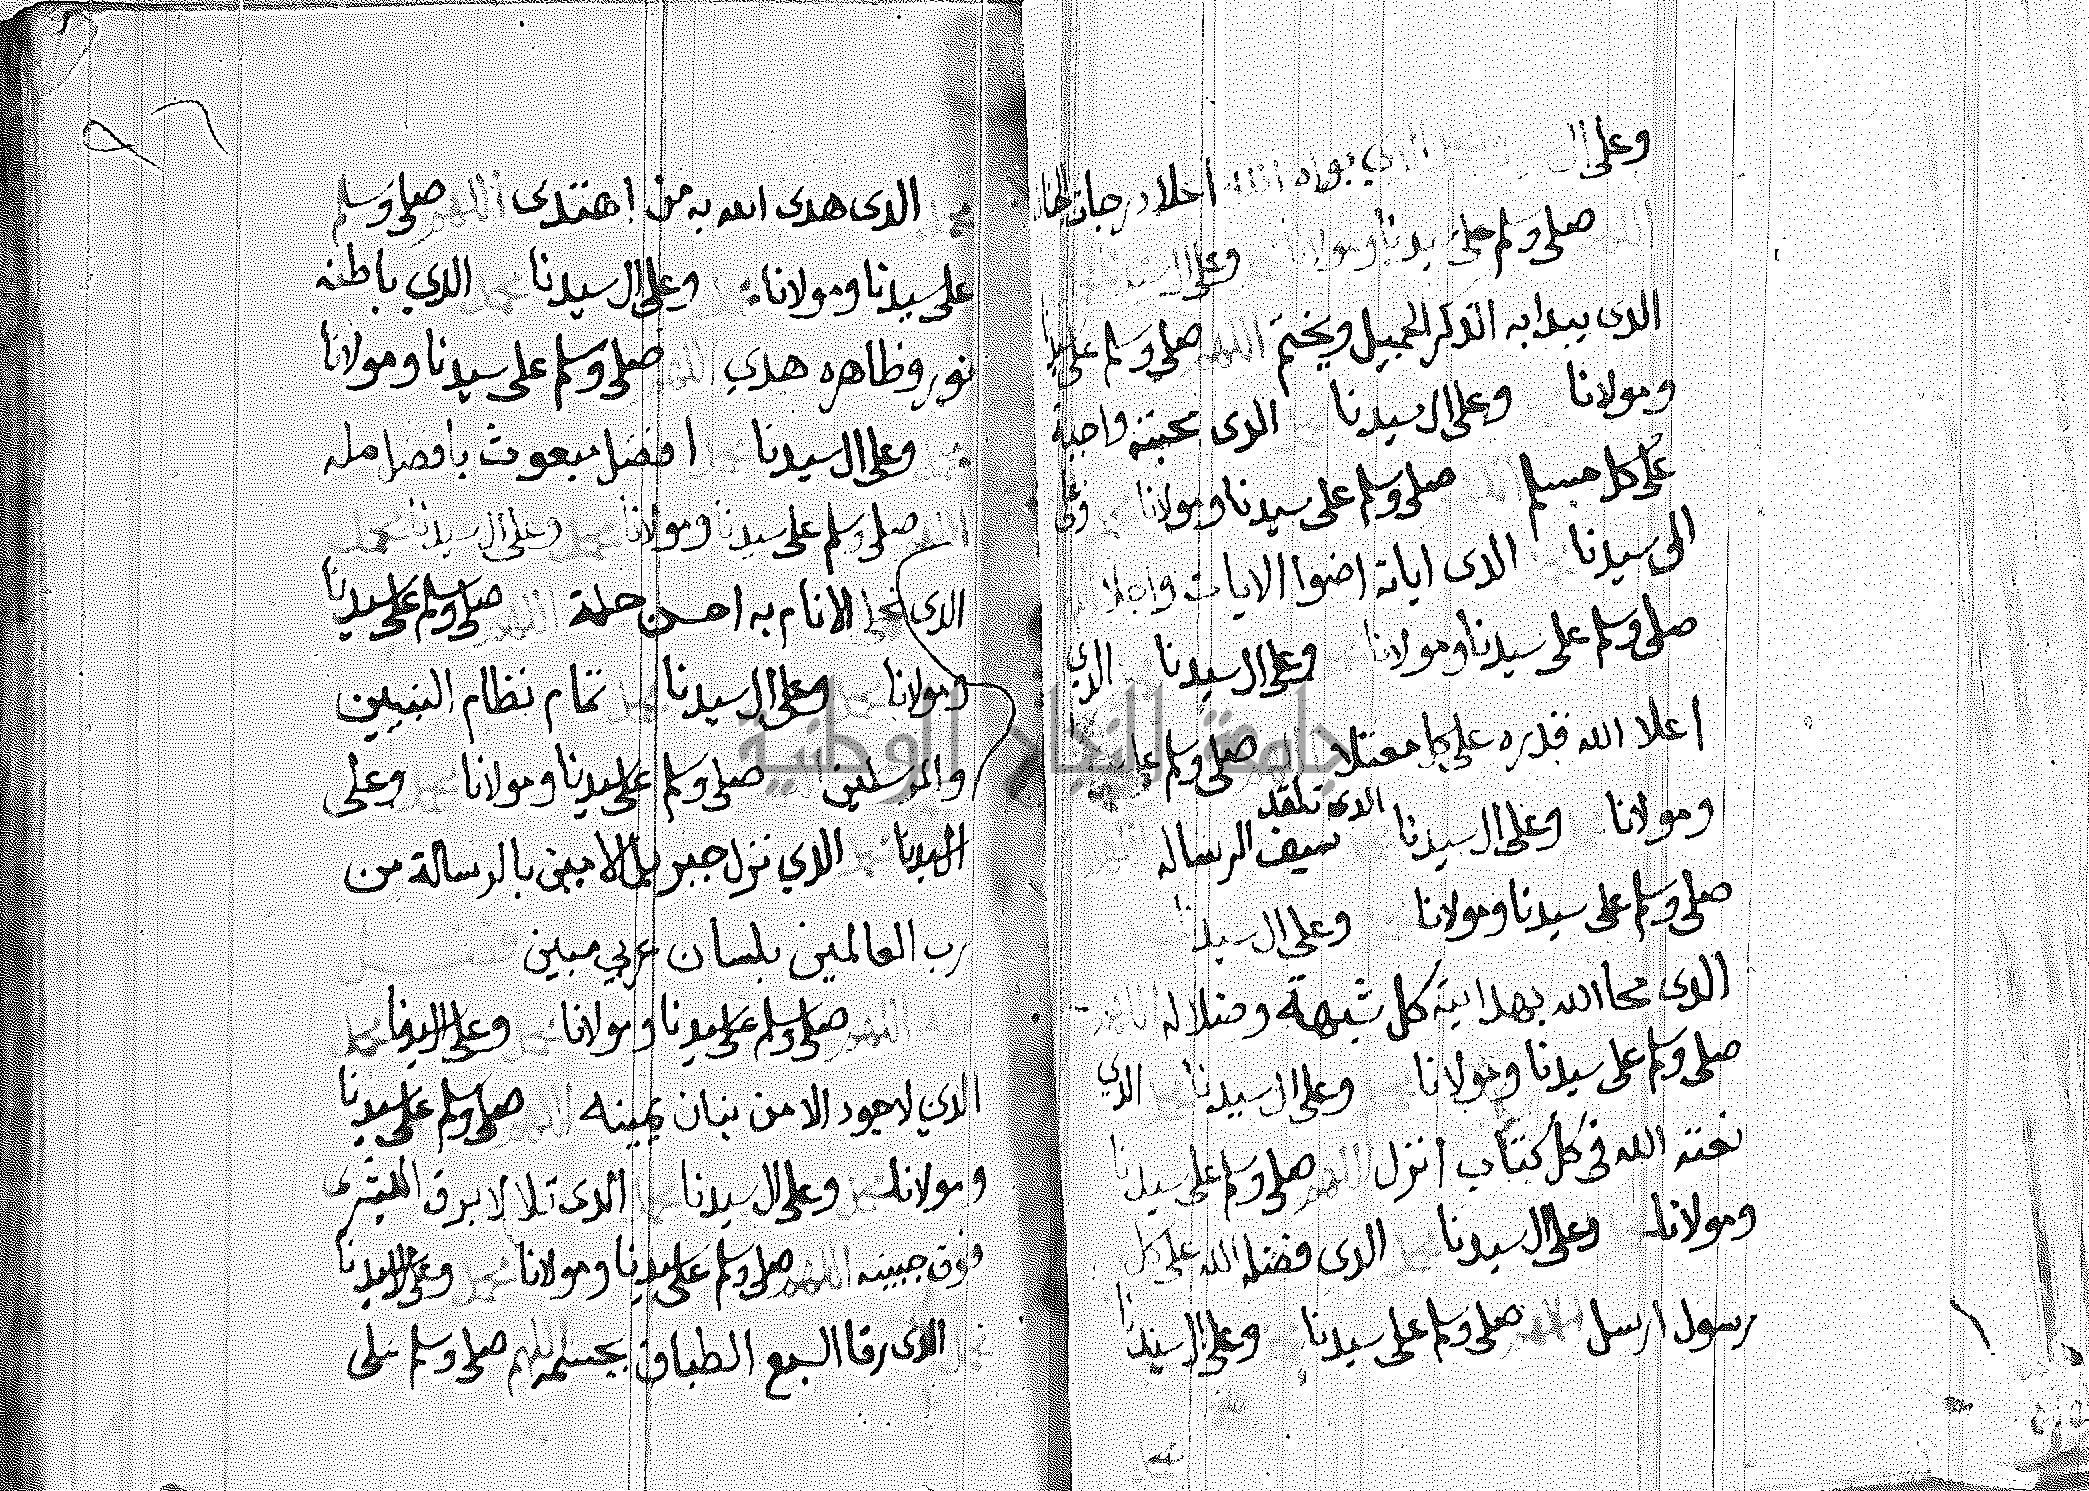 وعلى ال الذي بواه الله اعلا درجات
اللهم صلى وسلم على سيدنا ومولانا وعلى ال سيدنا
الذى يبدا به الذكر الجميل ويختم اللهم صلى وسلم على سيدنا
ومولانا وعلى ال سيدنا الذى محبته واجبة
على كل مسلم صلى وسلم على سيدنا ومولانا وعلى
ال سيدنا الذى اياته اضوا الايات واجلا
صلى وسلم على سيدنا ومولانا وعلى ال سيدنا الذي
اعلا الله قدره على كل معتلا صلى وسلم على سيدنا
ومولانا وعلى ال سيدنا الذى تقلد سيف الرساله
صلى وسلم على سيدنا ومولانا وعلى ال سيدنا
الذى محا الله بهدايته كل شبهة وضلاله اللهم
صلى وسلم على سيدنا ومولانا وعلى ال سيدنا الذي
نعته الله فى كل كتاب انزل اللهم صلى وسلم على سيدنا
ومولانا وعلى ال سيدنا الذى فضله الله على كل
رسول ارسل اللهم صلى وسلم على سيدنا وعلى ال سيدنا
محمد الذى هدى الله به من اهتدى اللهم صلى وسلم
على سيدنا ومولانا وعلى ال سيدنا محمد الذي باطنه
نور وظاهره هدي اللهم صلى وسلم على سيدنا ومولانا
وعلى ال سيدنا افضل مبعوث بافضل مله
اللهم صلى وسلم على سيدنا ومولانا محمد وعلى ال سيدنا محمد
الذى تحلى الانام به احسن حلة اللهم صلى وسلم على سيدنا
ومولانا وعلى ال سيدنا محمد تمام نظام النبيين
والمرسلين صلى وسلم على سيدنا ومولانا وعلى
ال سيدنا الذي نزل جبريل الامين بالرسالة من
رب العالمين بلسان عربي مبين
اللهم صلى وسلم على سيدنا ومولانا محمد وعلى ال سيدنا محمد
الذي لاجود الا من بنان يمينه اللهم صلى وسلم على سيدنا
ومولانا محمد وعلى ال سيدنا محمد الذى تلالا برق البشرى
فوق جبينه اللهم صلى وسلم على سيدنا ومولانا محمد وعلى ال سيدنا
محمد الذى رقا السبع الطباق بجسمه اللهم صلى وسلم على
جامعة النجاح الوطنية